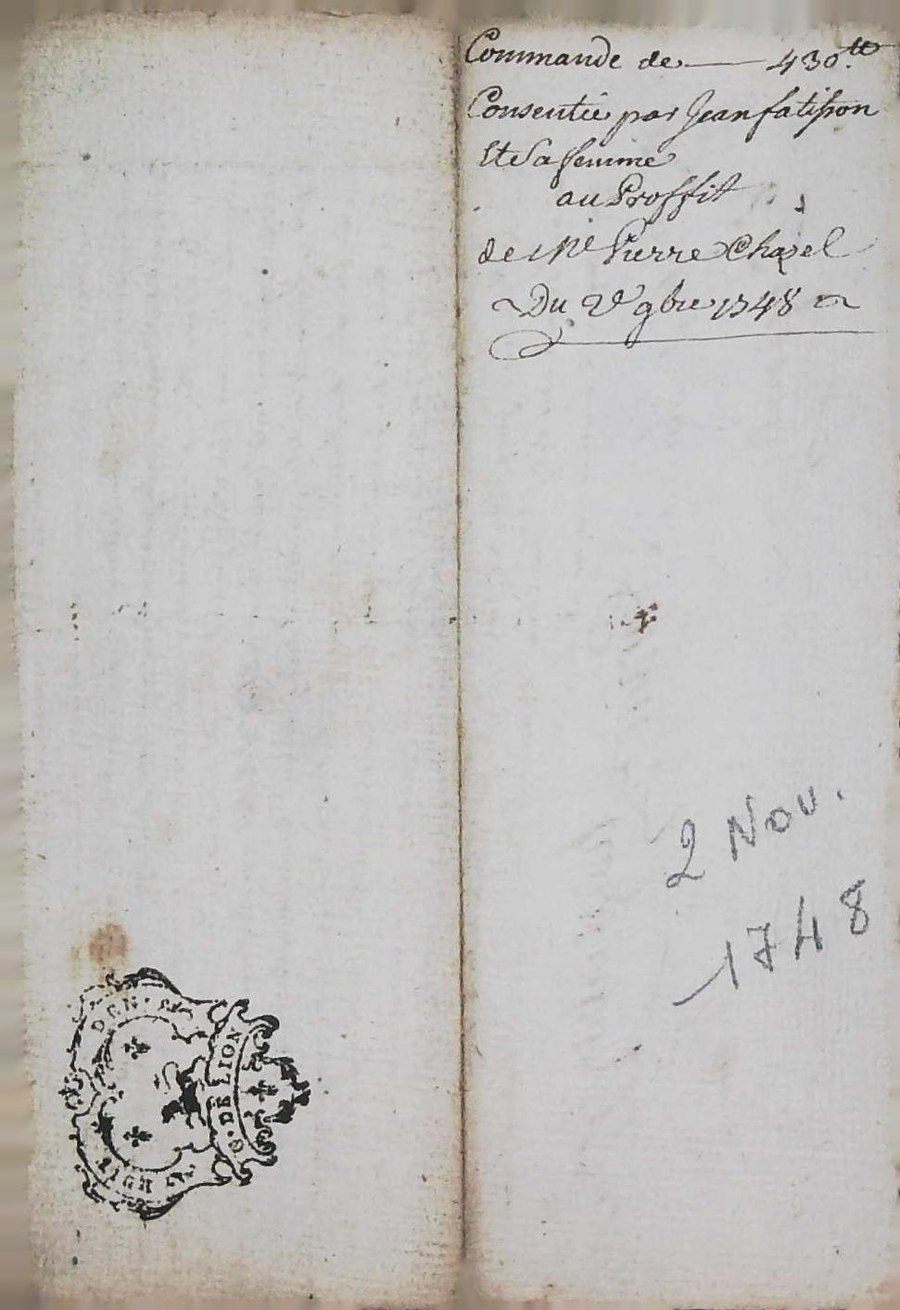 Commande de — 430.tt
Consentie par Jean fatisson
Et Sa femme
au Proffit
de Me Pierre Chazel
Du 2e 9bre 1748
2 Nov.
1748
G. DE LION
DEN.
HUIT